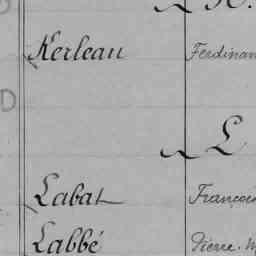 Kerleau Ferdinan
D
L
Labat François
Labbé Pierre